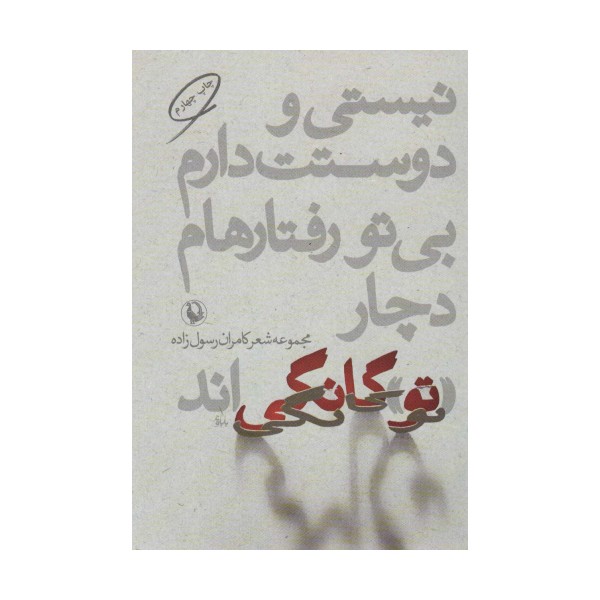 چاپ چهارم
نیستی و
دوستت دارم
بی‌تو رفتارهام
دچار
مجموعه شعر کامران رسول زاده
«تو» گانگی اند